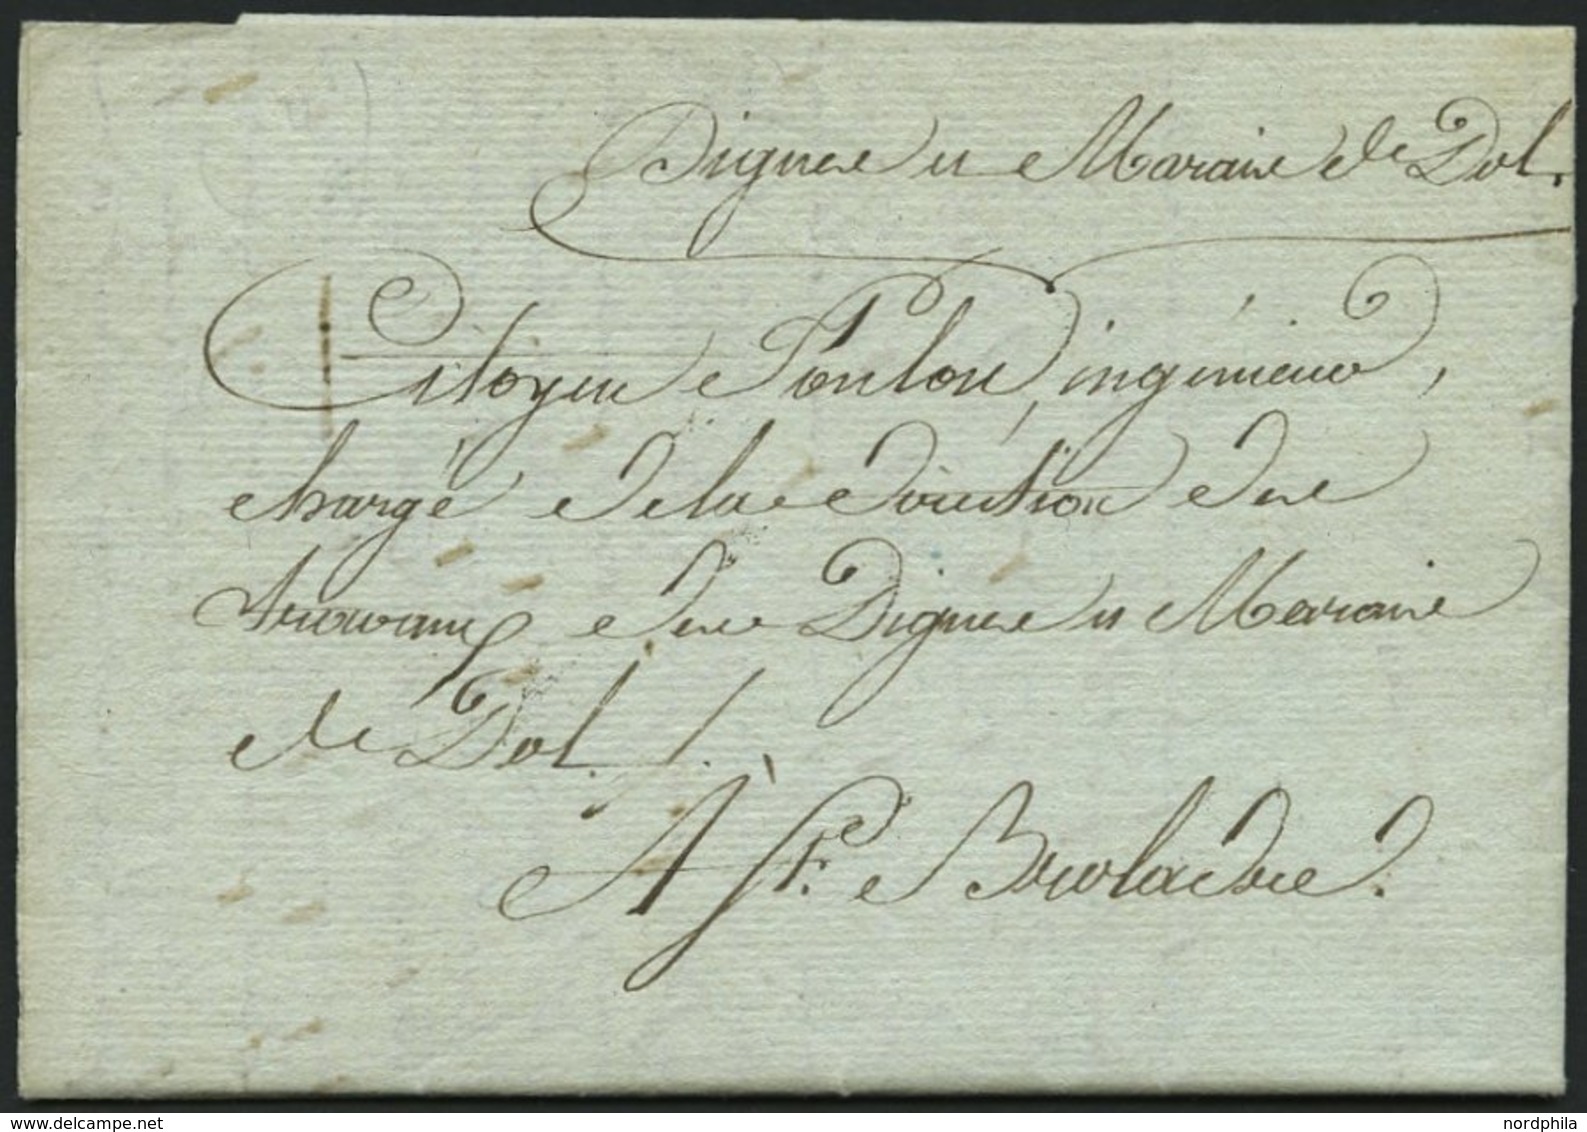 Digues et Marais de Dol.
Citoyen Toulon, ingénieur,
chargé de la direction des
travaux des Digues et Marais
de Dol. /.
À St. Broladre.
www.delcampe.net
nordphila